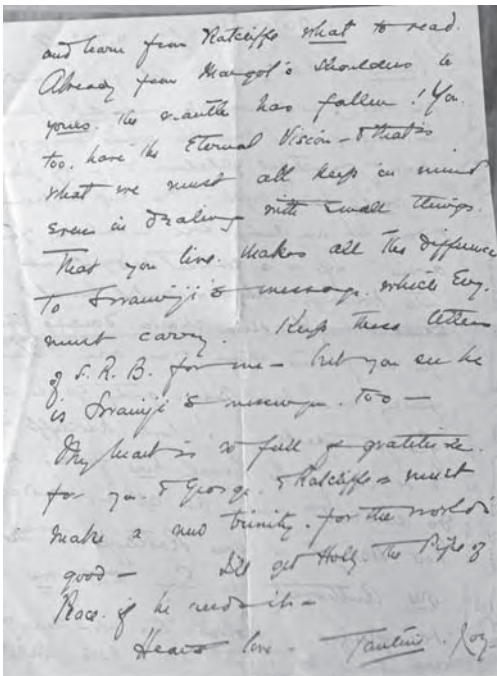 and learn from Ratcliffe what to read.
Already from Margot's shoulders to
yours. the mantle has fallen! You
too. have the Eternal Vision - & that is
what we must all keep in mind
even in dealing with small things.
That you live. makes all the difference
to Swamiji's message. which Eng.
must carry. Keep these letters
of S. R. B. for me - but you see he
is Swamiji's messenger. too -
My heart is so full of gratitude.
for you. & George. & Ratcliffe - must
make a new trinity. for the world's
good - I'll get Holly the Pipe of
Peace. if he needs it -
Heaps love - Tantine. Joy -